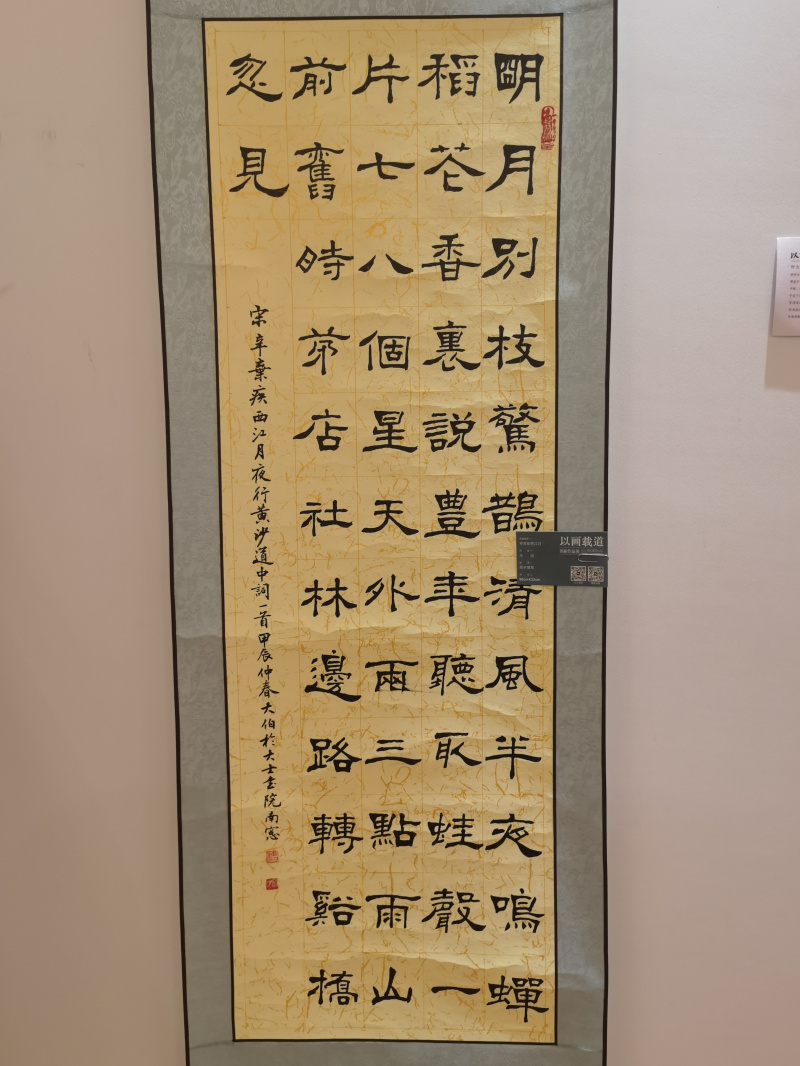 朙月別枝驚鵲清風半夜鳴蟬
稻花香裏說豊年聽取蛙聲一
片七八個星天外兩三點雨山
前舊時茅店社林邊路轉谿橋
忽見
宋辛棄疾西江月夜行黄沙道中詞一首甲辰仲春大伯於大士書院南窓
以画载道